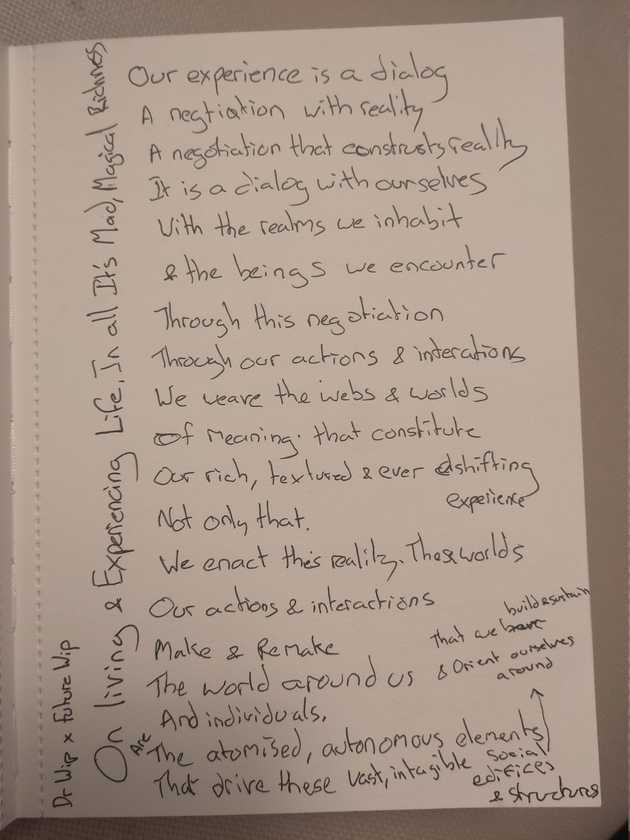 On living & Experiencing Life, In all It's Mad, Magical Richness
Dr Wip x Future Wip
Our experience is a dialog
A negtiation with reality
A negotiation that constructs reality
It is a dialog with ourselves
With the realms we inhabit
& the beings we encounter
Through this negotiation
Through our actions & interations
We weave the webs & worlds
Of meaning. that constitute
Our rich, textured & ever shifting
experience
Not only that.
We enact this reality. These worlds
Our actions & interactions
Make & Remake
The world around us
And individuals,
Are
The atomised, autonomous elements
That drive these vast, intagible social
edifices
& structures
build & sustain
That we
& Orient ourselves
around